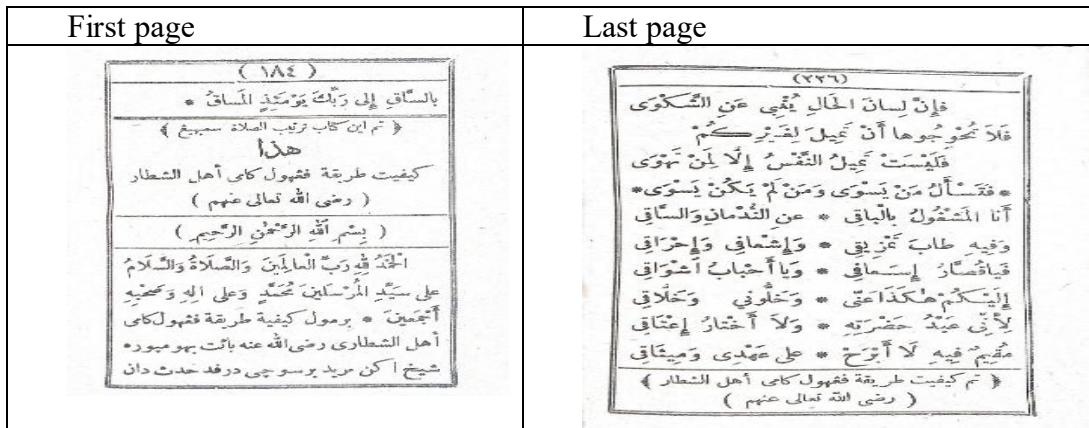 First page
Last page
( ١٨٤ )
بِالسَّاقِ إِلَى رَبِّكَ يَوْمَئِذٍ المَساقُ *
﴿ تم اين كتاب ترتيب الصلاة سمبهيغ ﴾
هذا
كيفيت طريقة ففهول كامى أهل الشطار
( رضى الله تعالى عنهم )
( بِسْمِ اللَّهِ الرَّحْمٰنِ الرَّحِيمِ )
الْحَمْدُ لِلَّهِ رَبِّ الْعَالَمِينَ وَالصَّلَاةُ وَالسَّلَامُ
على سَيِّدِ الْمُرْسَلِينَ مُحَمَّدٍ وَعلى آلِهِ وَصَحْبِهِ
أَجْمَعِينَ * برمول كيفية طريقة ففهول كامى
أهل الشطارى رضى الله عنه بائت بهو مبوره
شيخ اكن مريد برسوچى درفد حدث دان
(٢٢٦)
فَإِنَّ لِسانَ الْحَالِ يُغْنِى عَنِ الشَّكْوَى
فَلَا تُحْوِجُوها أَنْ تَمِيلَ لِغَيْرِكُمْ
فَلَيْسَتْ تَمِيلُ النَّفْسُ إِلَّا لِمَنْ تَهْوَى
* فَتَسْأَلُ مَنْ يَسْوَى وَمَنْ لَمْ يَكُنْ يَسْوَى *
أَنا الْمَشْغُولُ بِالْباقِى * عن النُّدْمانِ وَالسَّاقِى
وَفِيهِ طابَ تَمْزِيقِى * وَإِشْعافِى وَإِحْرَاقِى
فَياقُصَّارُ إِسْعافِى * وَيا أَحْبابُ أَشْوَاقِى
إِلَيْكُمْ هٰكَذَا عَنِّى * وَخَلُّونِي وَخَلَّاقِى
لِأَنِّى عَبْدُ حَضْرَتِهِ * وَلَا أَخْتارُ إِعْتَاقِى
مُقِيمٌ فِيهِ لَا أَبْرَحْ * على عَهْدِى وَمِيثَاقِى
﴿ تم كيفيت طريقة ففهول كامى أهل الشطار ﴾
( رضى الله تعالى عنهم )